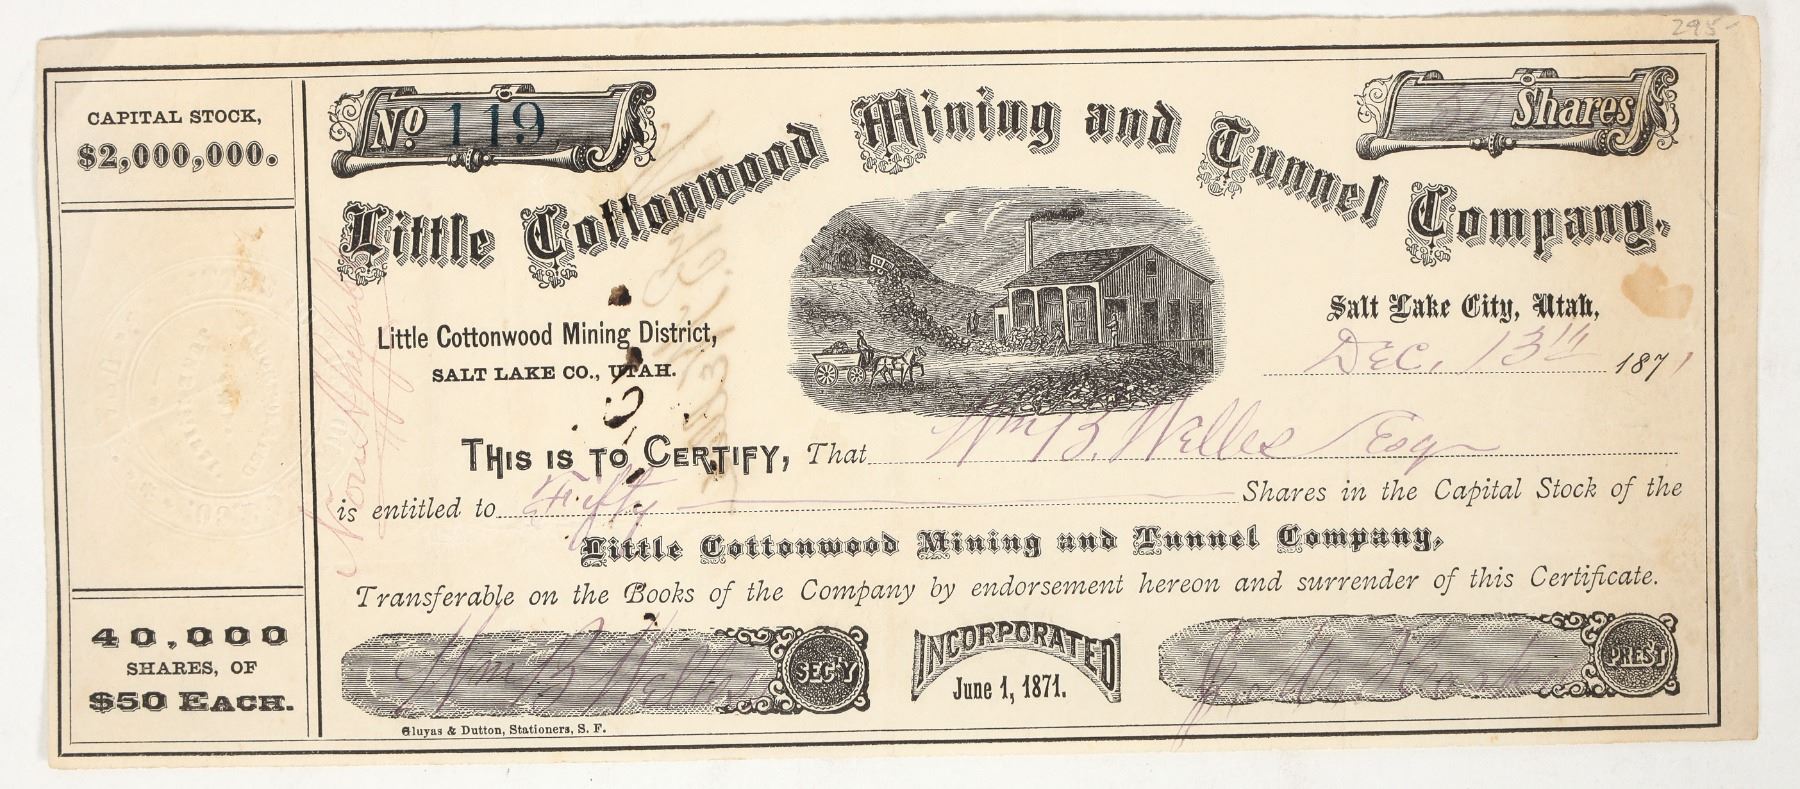 295
CAPITAL STOCK,
$2,000,000.
No. 119
50 Shares
Little Cottonwood Mining and Tunnel Company.
Little Cottonwood Mining District,
SALT LAKE CO., UTAH.
Salt Lake City, Utah,
Dec. 13th 1871
THIS IS TO CERTIFY, That Wm B. Welles Esq
is entitled to Fifty Shares in the Capital Stock of the
Little Cottonwood Mining and Tunnel Company,
Transferable on the Books of the Company by endorsement hereon and surrender of this Certificate.
40,000
SHARES, OF
$50 EACH.
Wm B Welles SEC'Y
INCORPORATED
June 1, 1871.
PREST
Gluyas & Dutton, Stationers, S. F.